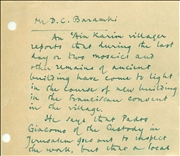 Mr D.C. Baramki
An 'Ain Karim villager
reports that during the last
day or two mosaics and
other remains of ancient
building have come to light
in the course of new building
in the Franciscan convent
in the village.
He says that Padre
Giacomo of the Custody in
Jerusalem goes out to inspect
the work, but that a local